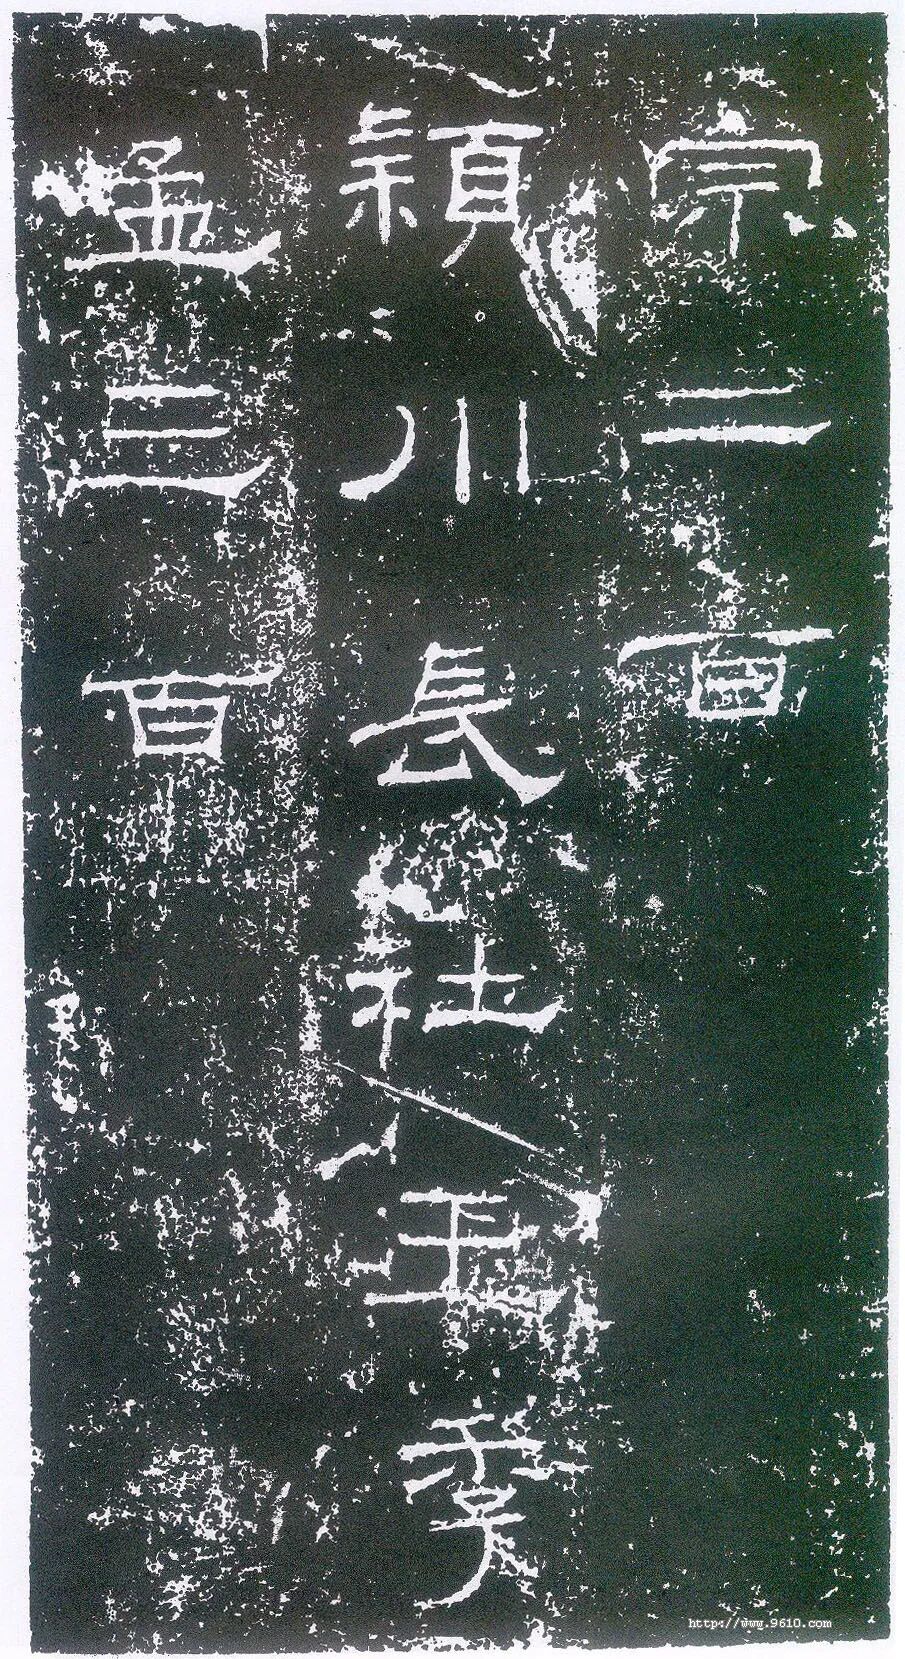 宗二百
頴川長社王季
孟三百
http://www.9610.com